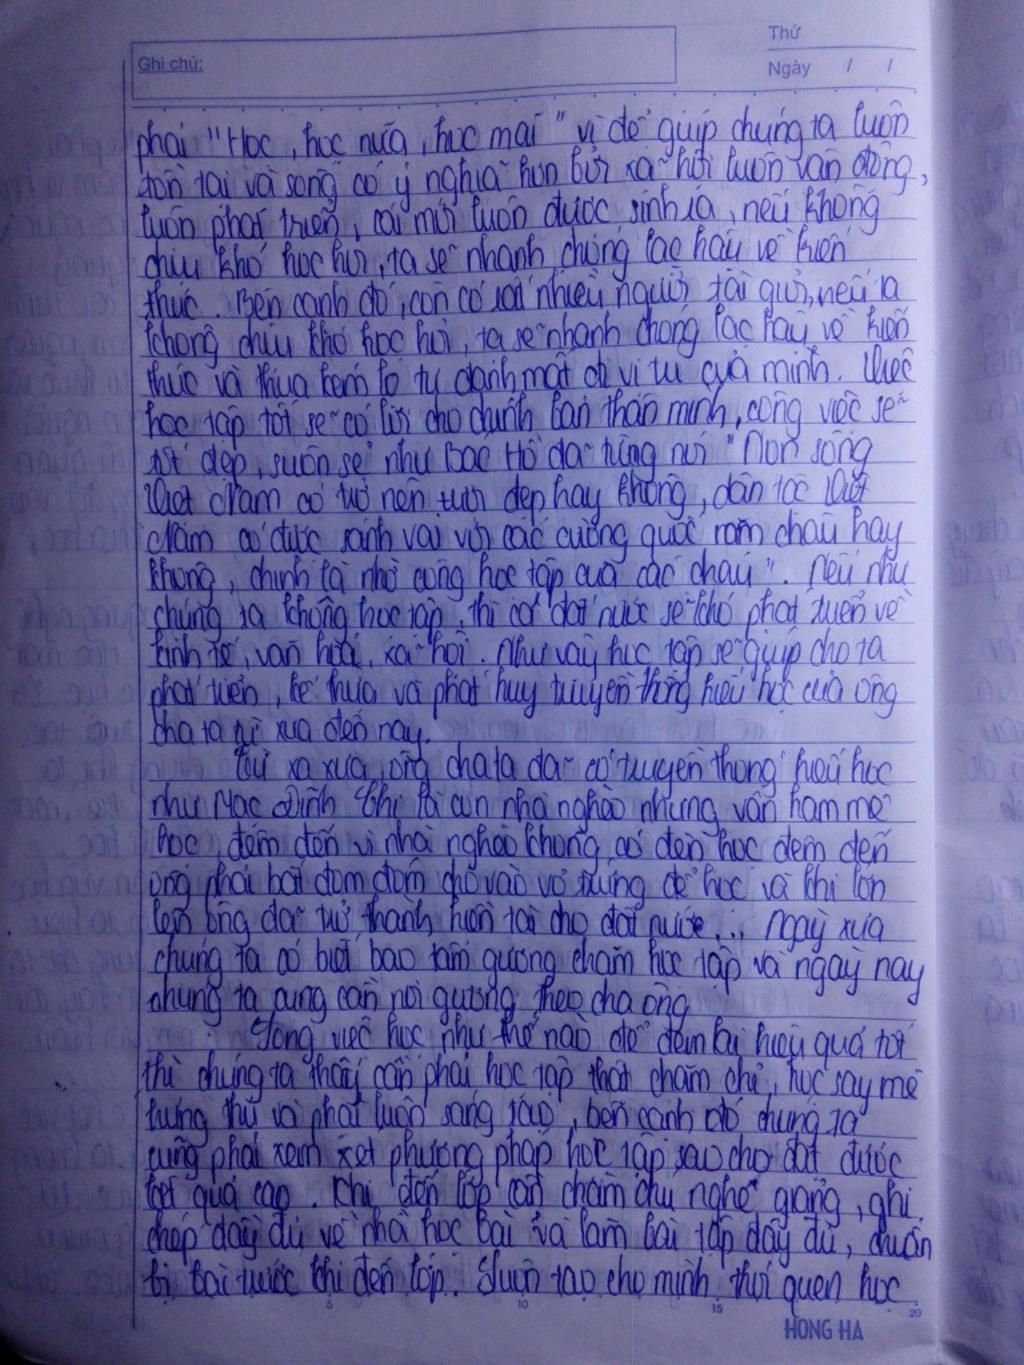 Ghi chú:
Thứ
Ngày / /
phải "Học, học nữa, học mãi" vì để giúp chúng ta luôn
tồn tại và sống có ý nghĩa hơn bởi xã hội luôn vận động,
luôn phát triển, cái mới luôn được sinh ra, nếu không
chịu khó học hỏi, ta sẽ nhanh chóng lạc hậu về kiến
thức. Bên cạnh đó, còn có rất nhiều người tài giỏi, nếu ta
không chịu khó học hỏi, ta sẽ nhanh chóng lạc hậu về kiến
thức và thua kém họ tự đánh mất đi vị trí của mình. Việc
học tập tốt sẽ có lợi cho chính bản thân mình, công việc sẽ
tốt đẹp, suôn sẻ như Bác Hồ đã từng nói "Non sông
Việt Nam có trở nên tươi đẹp hay không, dân tộc Việt
Nam có được sánh vai với các cường quốc năm châu hay
không, chính là nhờ công học tập của các cháu". Nếu như
chúng ta không học tập, thì cả đất nước sẽ khó phát triển về
kinh tế, văn hóa, xã hội. Như vậy học tập sẽ giúp cho ta
phát triển, kế thừa và phát huy truyền thống hiếu học của ông
cha ta từ xưa đến nay.
Từ xa xưa, ông cha ta đã có truyền thống hiếu học
như Mạc Đĩnh Chi là con nhà nghèo nhưng vẫn ham mê
học, đêm đến vì nhà nghèo không có đèn học đêm đến
ông phải bắt đom đóm cho vào vỏ trứng để học và khi lớn
lên ông đã trở thành hiền tài cho đất nước... Ngày xưa
chúng ta có biết bao tấm gương chăm học tập và ngày nay
chúng ta cũng cần noi gương theo cha ông
Song việc học như thế nào để đem lại hiệu quả tốt
thì chúng ta thấy cần phải học tập thật chăm chỉ, học say mê
hứng thú và phải luôn sáng tạo, bên cạnh đó chúng ta
cũng phải xem xét phương pháp học tập sao cho đạt được
kết quả cao. Khi đến lớp cần chăm chú nghe giảng, ghi
chép đầy đủ về nhà học bài và làm bài tập đầy đủ, chuẩn
bị bài trước khi đến lớp. Luôn tạo cho mình thói quen học
5 10 15 20
HONG HA